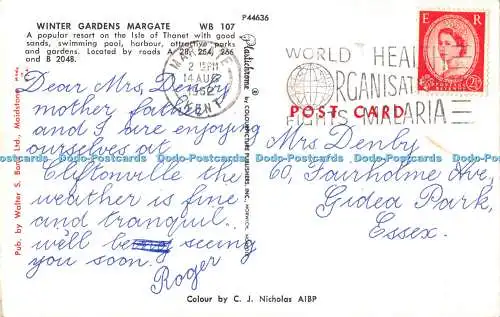 P44636
WINTER GARDENS MARGATE WB 107
A popular resort on the Isle of Thanet with good
sands, swimming pool, harbour, attractive parks
and gardens. Located by roads A 28, 254, 256
and B 2048.
MARGATE
2 15PM
14 AUG
1962
KENT
WORLD HEAL
ORGANISAT
FIGHTS MALARIA
E R
2½D
POST CARD
Dear Mrs. Denby
mother father
and I are enjoying
ourselves at
Cliftonville the
weather is fine
and tranquil.
we'll be seeing
you soon.
Roger
Mrs Denby
60, Fairholme Ave,
Gidea Park,
Essex.
Pub. by Walter S. Ltd., Maidstone
Plastichrome ® by COLOURPICTURE PUBLISHERS, INC.,
Colour by C. J. Nicholas AIBP
Dodo-Postcards Dodo-Postcards Dodo-Postcards Dodo-Postcards Dodo-Postcards Dodo-Postcards